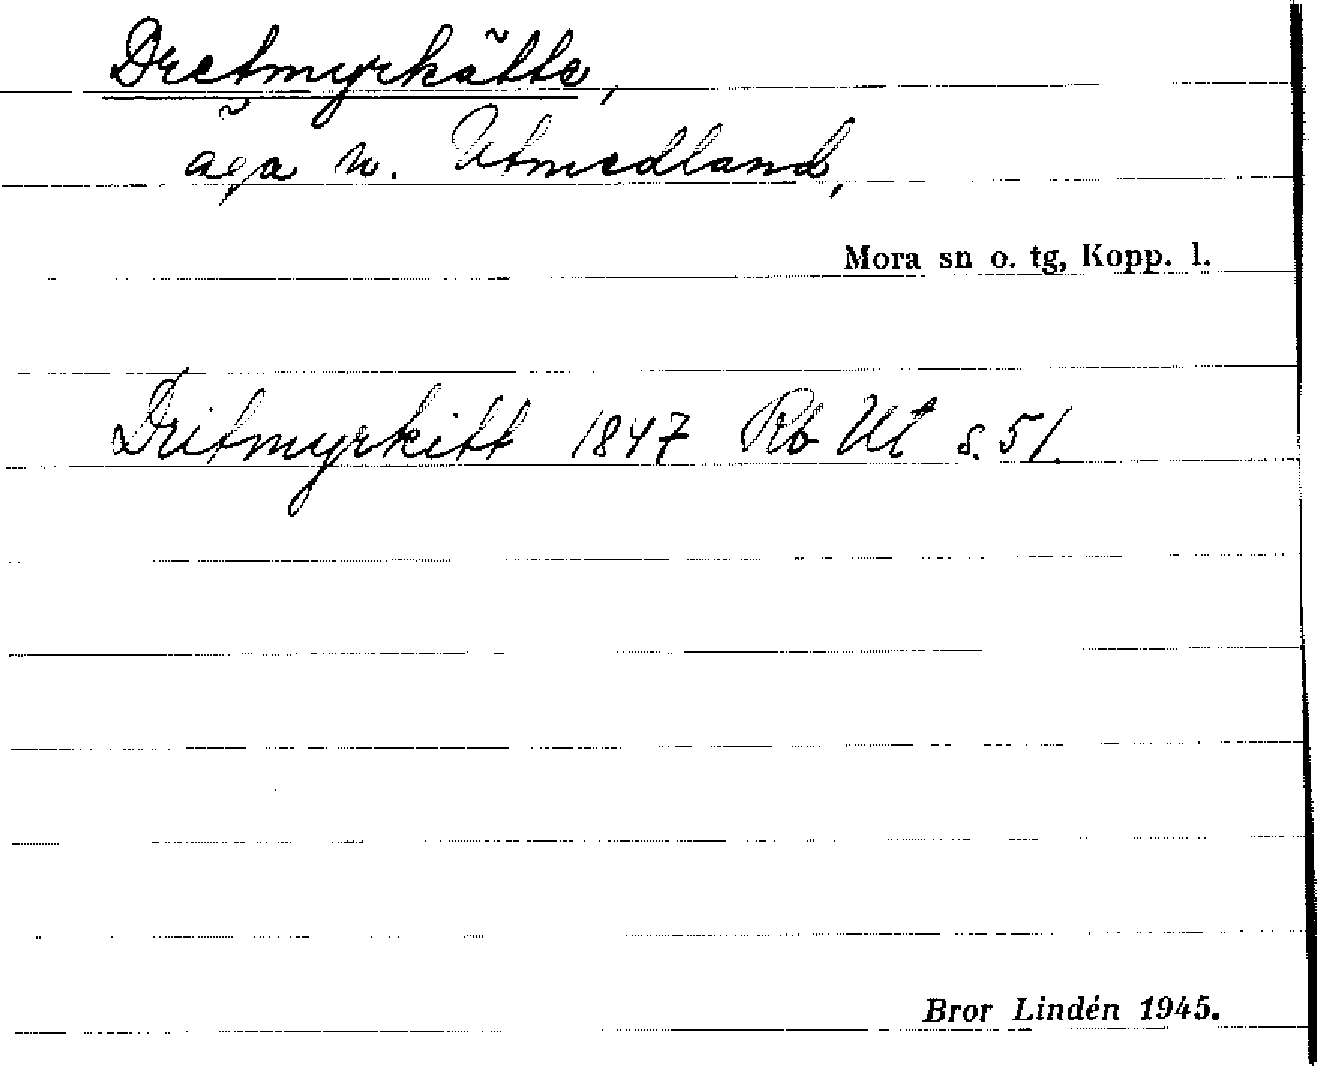 Dretmyrkätte,
äga n. Utmedland,
Mora sn o. tg, Kopp. l.
Dritmyrkitt 1847 Rb Ut s. 51.
Bror Lindén 1945.